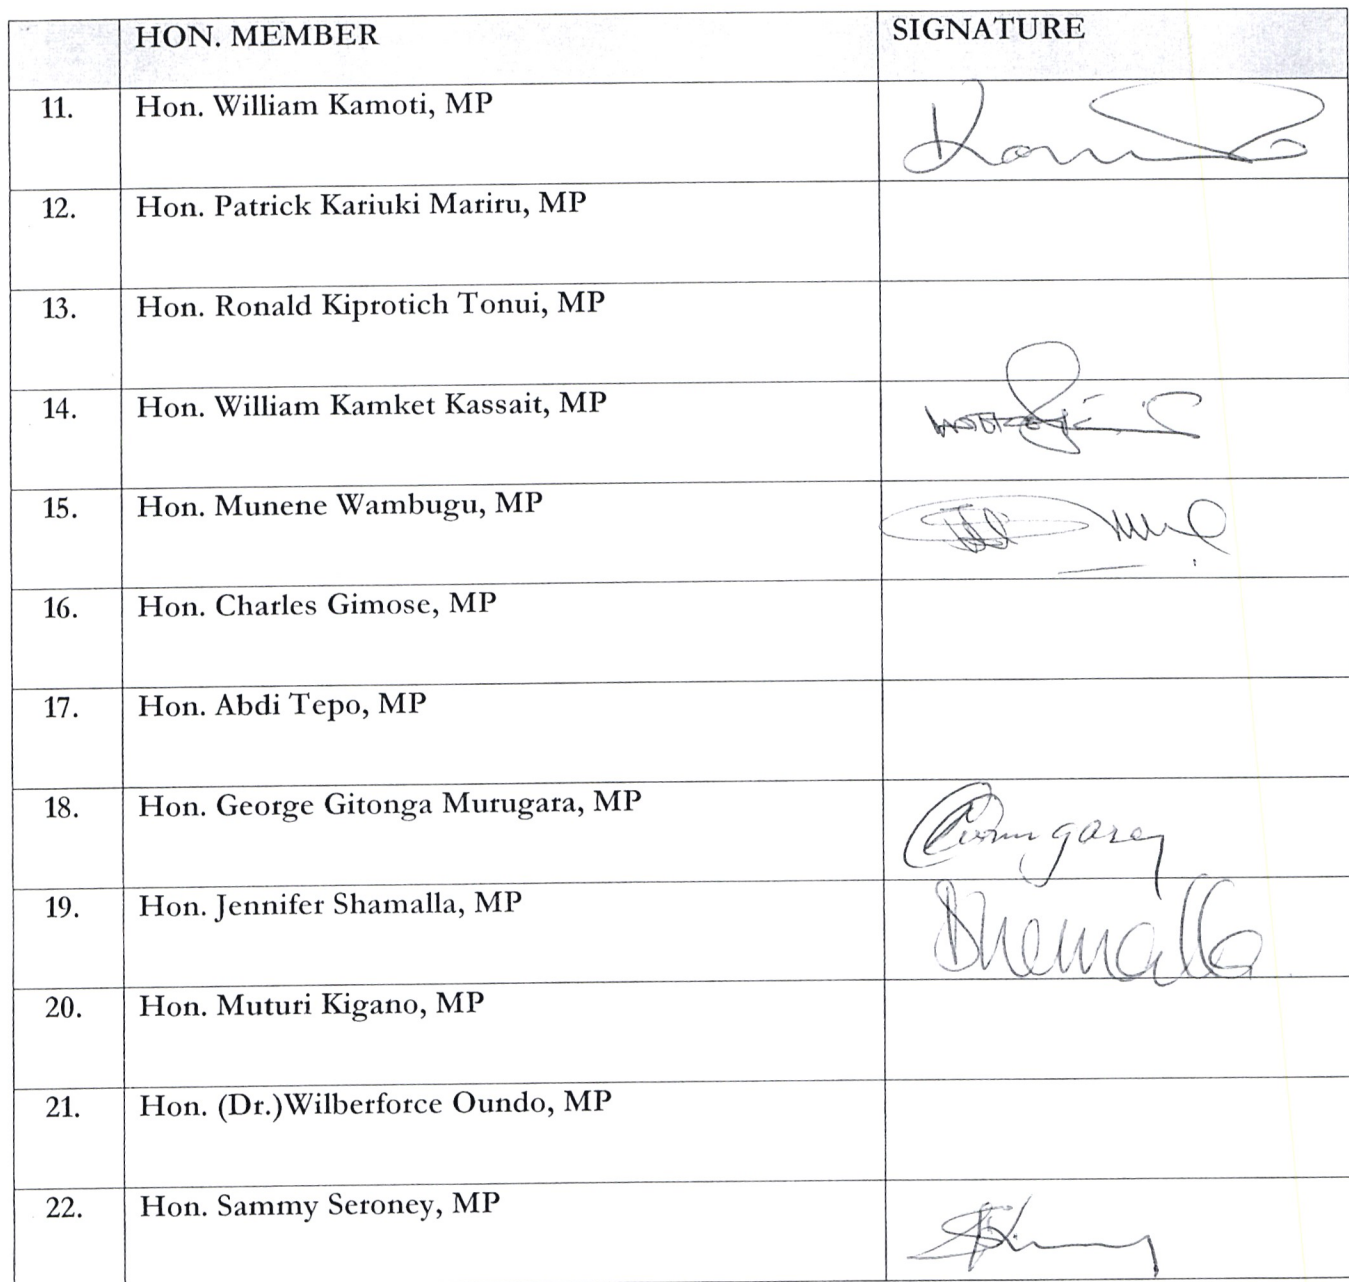 HON. MEMBER SIGNATURE
11. Hon. William Kamoti, MP
12. Hon. Patrick Kariuki Mariru, MP
13. Hon. Ronald Kiprotich Tonui, MP
14. Hon. William Kamket Kassait, MP
15. Hon. Munene Wambugu, MP
16. Hon. Charles Gimose, MP
17. Hon. Abdi Tepo, MP
18. Hon. George Gitonga Murugara, MP
19. Hon. Jennifer Shamalla, MP
20. Hon. Muturi Kigano, MP
21. Hon. (Dr.)Wilberforce Oundo, MP
22. Hon. Sammy Seroney, MP